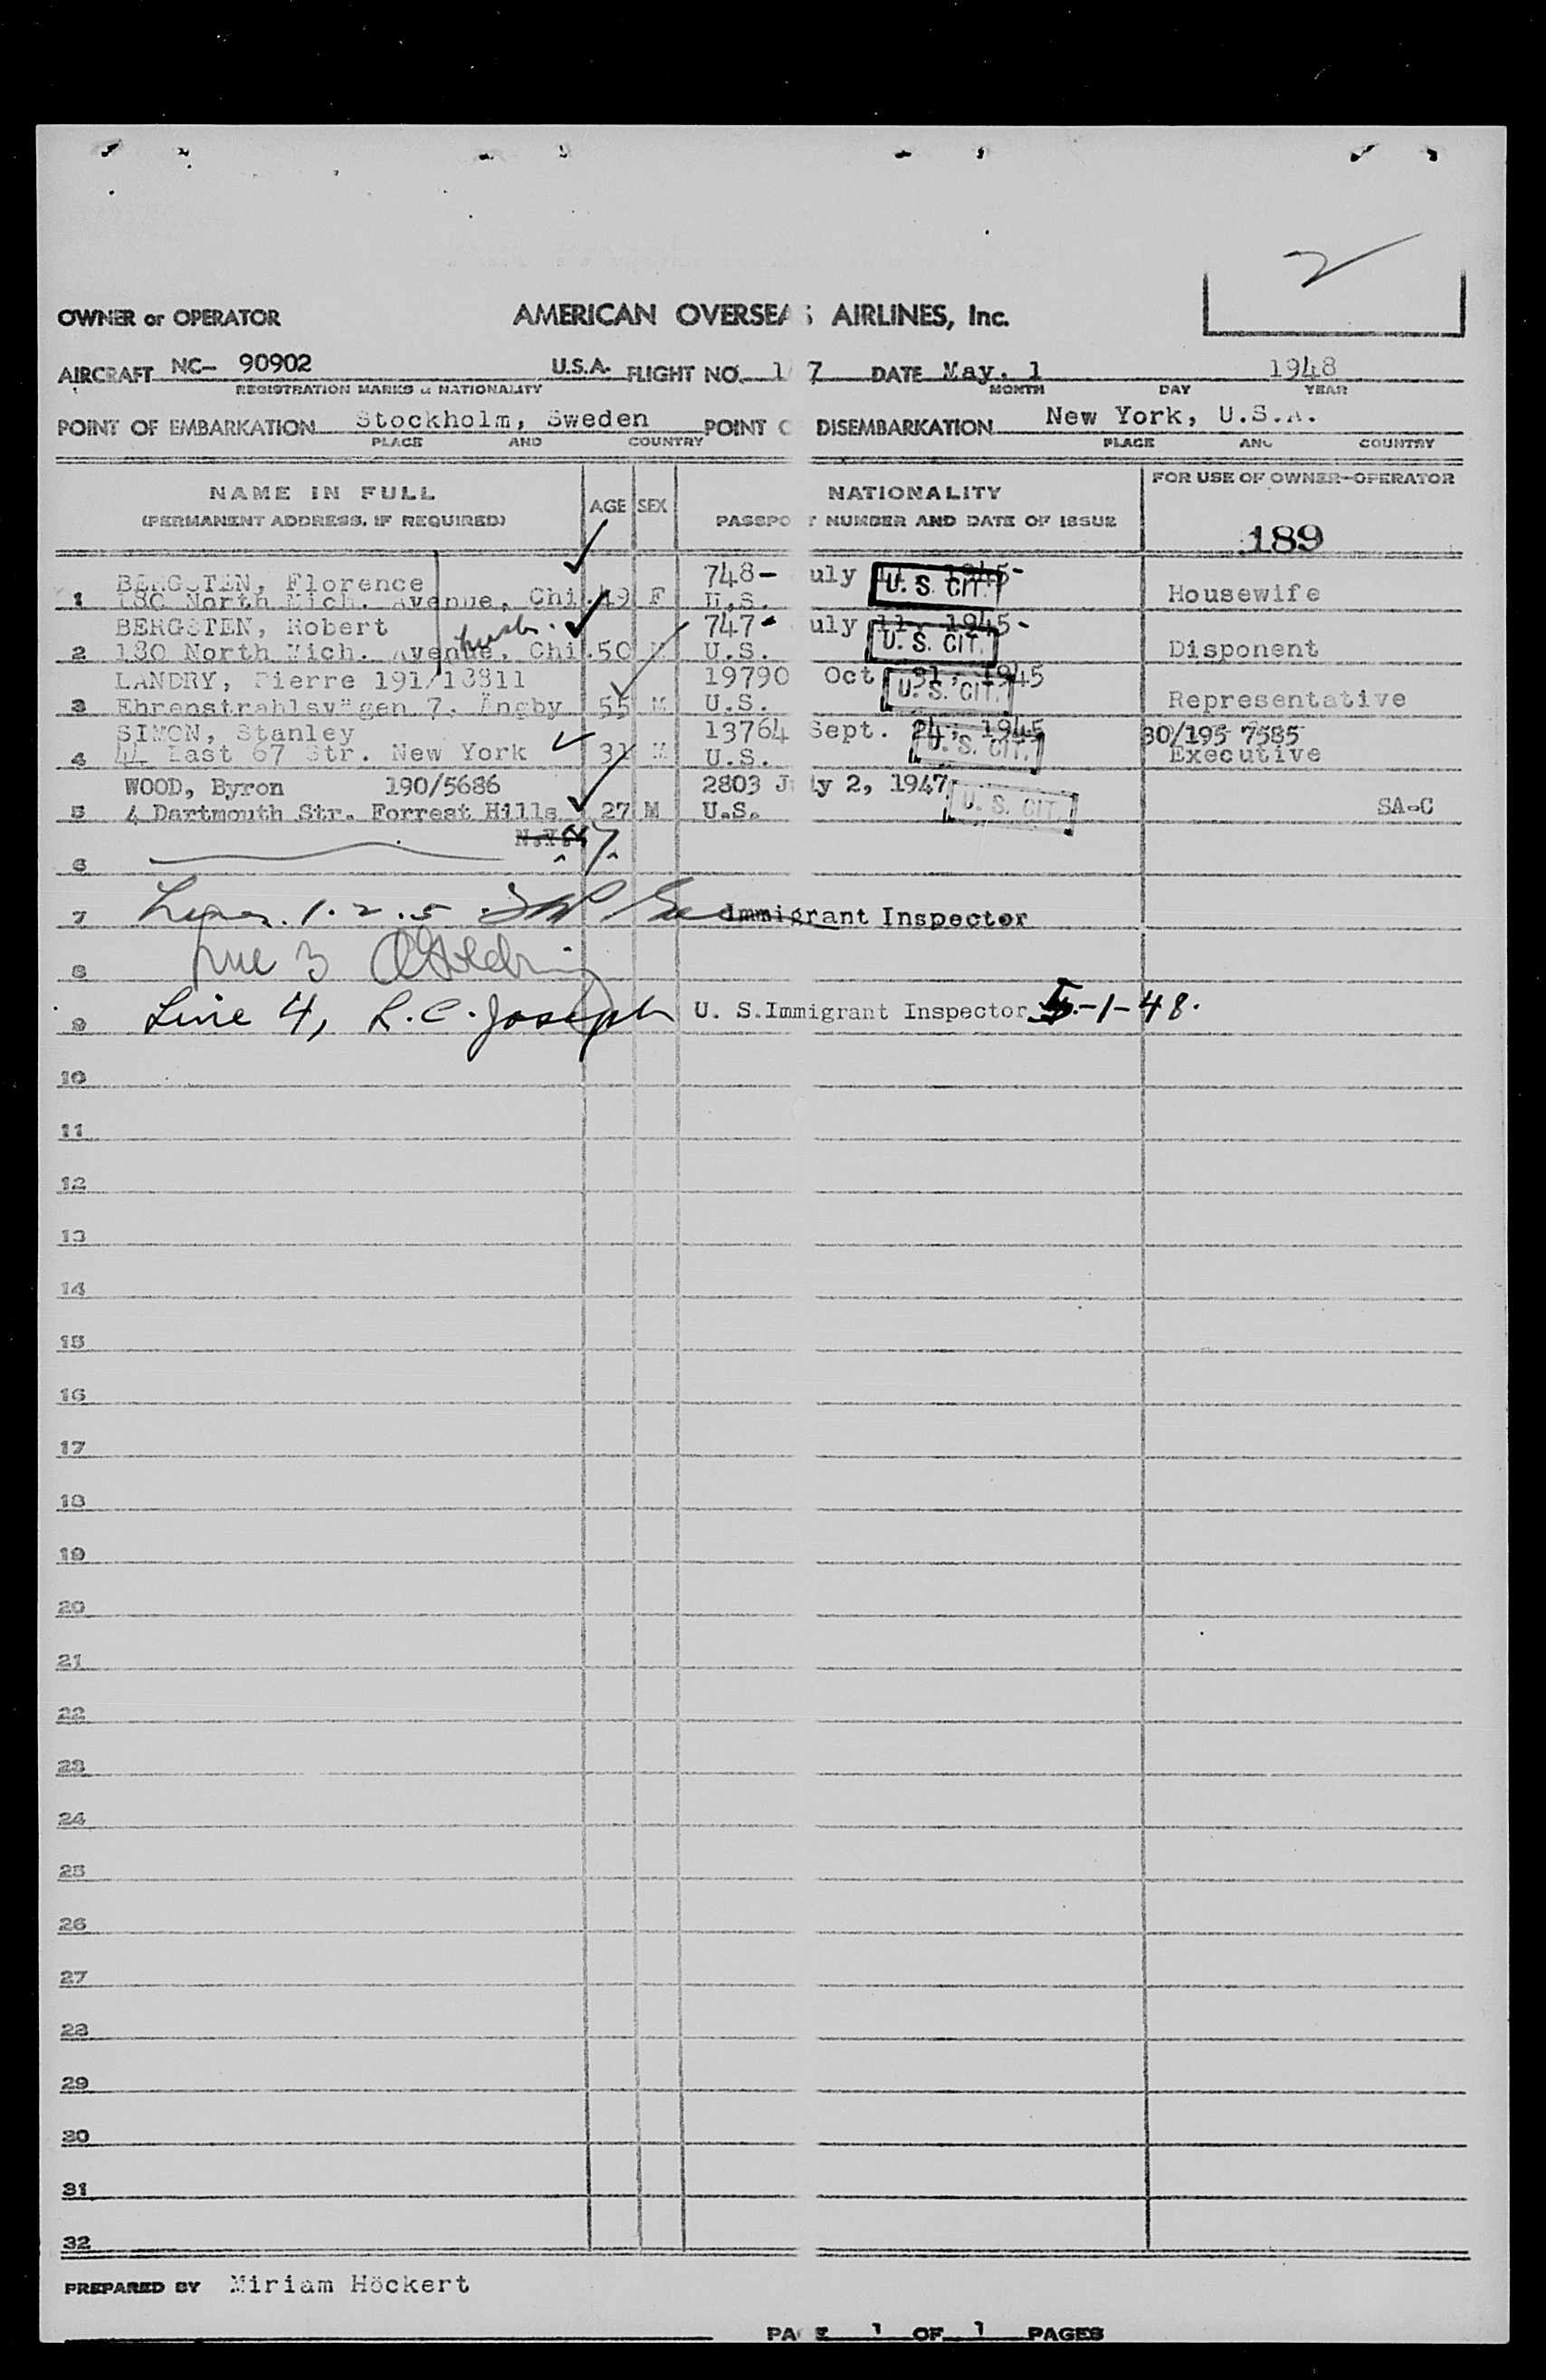 2
OWNER or OPERATOR AMERICAN OVERSEAS AIRLINES, Inc.
AIRCRAFT NC- 90902 U.S.A. FLIGHT NO. 1 7 DATE May. 1 1948
REGISTRATION MARKS & NATIONALITY MONTH DAY YEAR
POINT OF EMBARKATION Stockholm, Sweden POINT O DISEMBARKATION New York, U.S.A.
PLACE AND COUNTRY PLACE AND COUNTRY
NAME IN FULL AGE SEX NATIONALITY FOR USE OF OWNER-OPERATOR
(PERMANENT ADDRESS, IF REQUIRED) PASSPORT NUMBER AND DATE OF ISSUE
189
BERGSTEN, Florence 748- uly 11, 1945-
1 180 North Mich. Avenue, Chi. 49 F U.S. U. S. CIT. Housewife
BERGSTEN, Robert husb. 747- uly 11, 1945-
2 180 North Mich. Avenue, Chi. 50 M U.S. U. S. CIT. Disponent
LANDRY, Pierre 191/13811 19790 Oct 31, 1945
3 Ehrenstrahlsvägen 7. Ängby 55 M U.S. U. S. CIT. Representative
SIMON, Stanley 13764 Sept. 24, 1945 30/195 7585
4 44 East 67 Str. New York 31 M U.S. U. S. CIT. Executive
WOOD, Byron 190/5686 2803 J ly 2, 1947
5 4 Dartmouth Str. Forrest Hills 27 M U.S. U. S. CIT. SA-C
N.Y.
6
7 Lines. 1. 2. 5 Immigrant Inspector
8 Line 3
9 Line 4, R. C. Joseph U. S. Immigrant Inspector 5-1-48.
10
11
12
13
14
15
16
17
18
19
20
21
22
23
24
25
26
27
28
29
30
31
32
PREPARED BY Miriam Höckert
PAGE 1 OF 1 PAGES